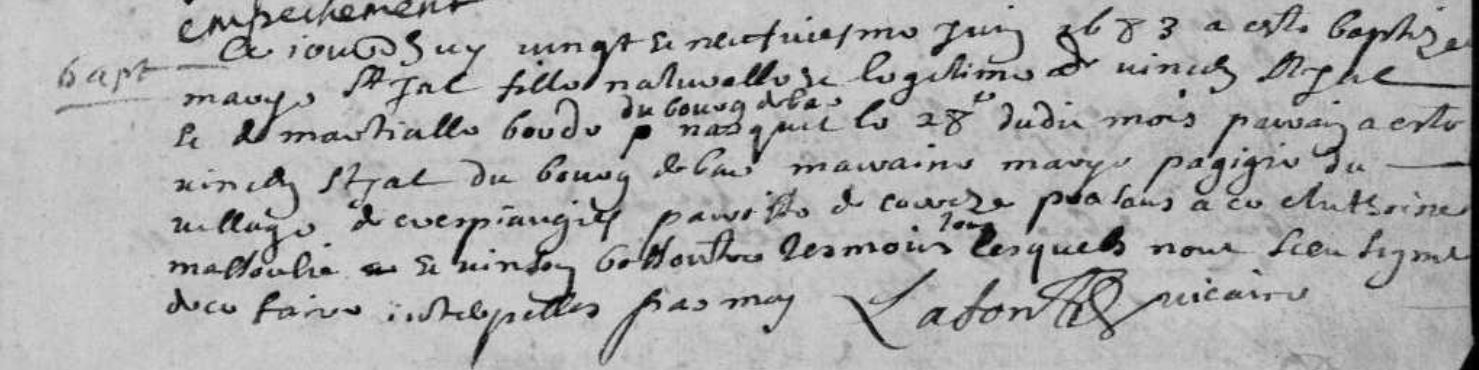 empechement
bapt Ce iourdhuy vingt & neufviesme Juin 1683 a esté baptizé
marye St Jal fille naturelle & legitime de vincen St Jal
& de martialle boudy du bourg de bar nasquit le 28e dudit mois parrain a esté
vincen St Jal du bourg de bar marraine marye pagigie du
village de parroisse de correze presans a ce
& vincen tesmoins tous lesquels nont sceu signer
de ce faire interpelles par moy Lafon vicaire